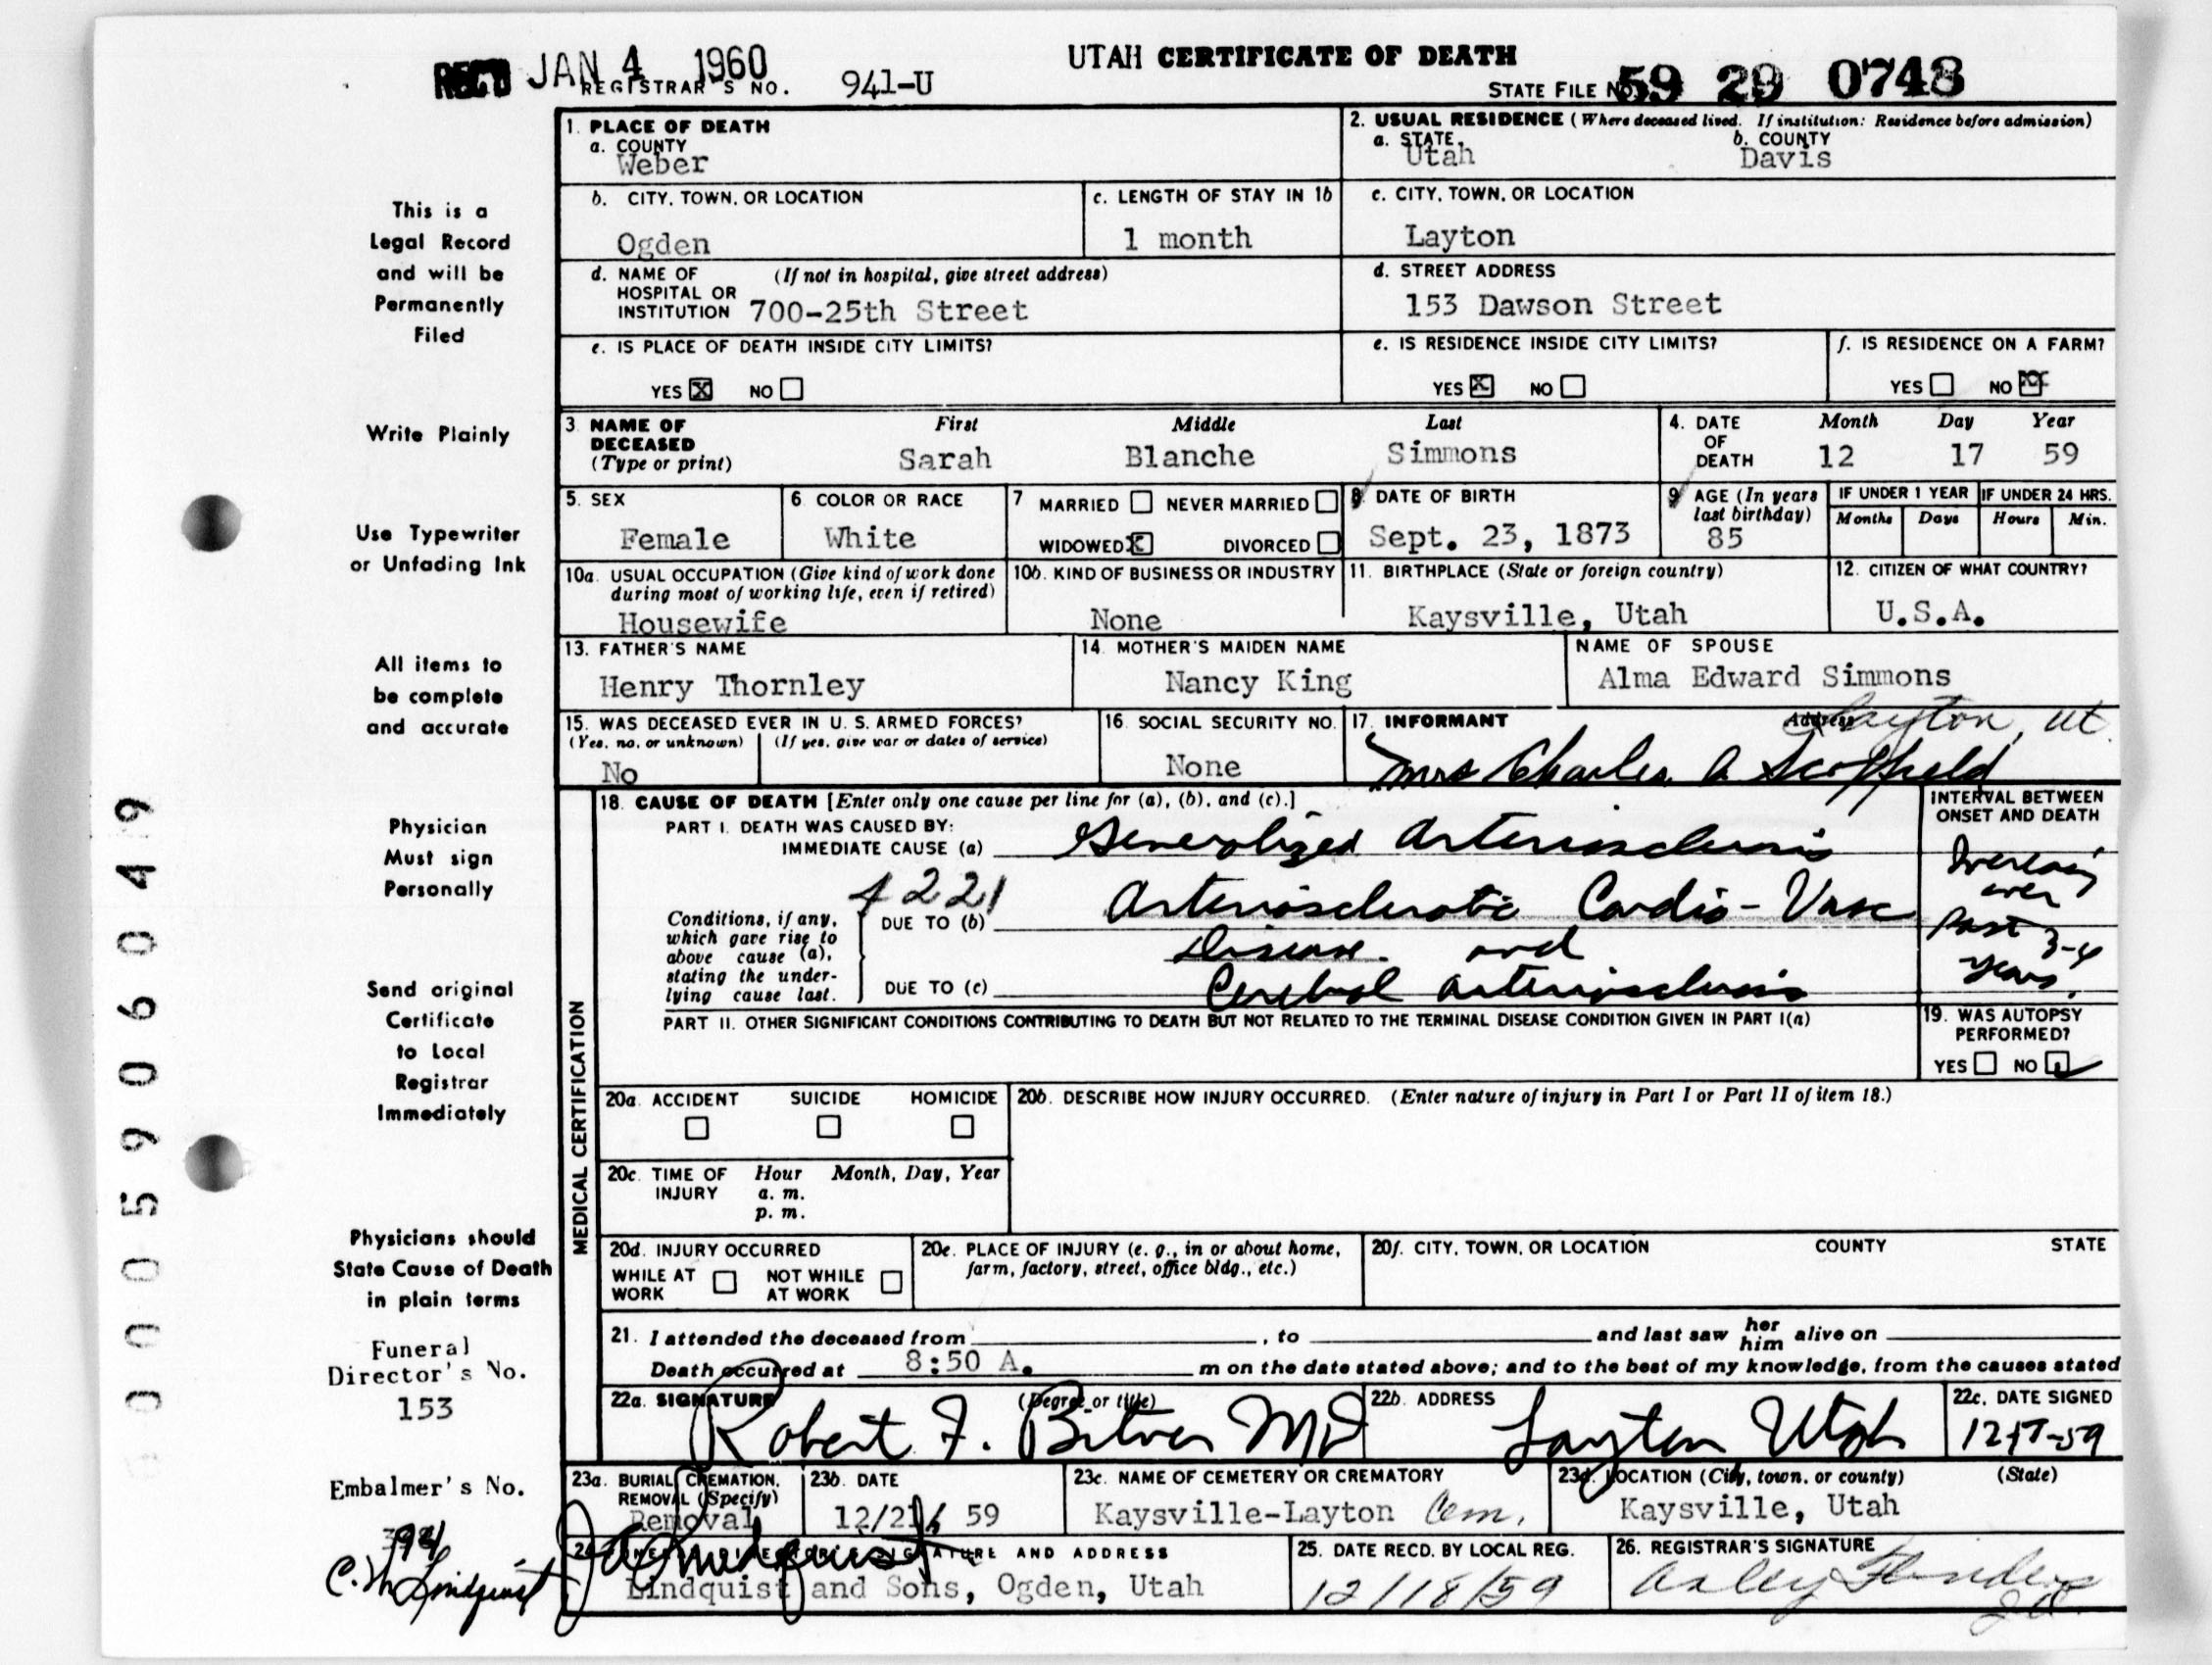 REC'D JAN 4 1960
REGISTRAR'S NO. 941-U
UTAH CERTIFICATE OF DEATH
STATE FILE NO. 59 29 0748
This is a
Legal Record
and will be
Permanently
Filed
Write Plainly
Use Typewriter
or Unfading Ink
All items to
be complete
and accurate
Physician
Must sign
Personally
Send original
Certificate
to Local
Registrar
Immediately
Physicians should
State Cause of Death
in plain terms
Funeral
Director's No.
153
Embalmer's No.
394
C. W. Lindquist
0005906049
1. PLACE OF DEATH
a. COUNTY
Weber
2. USUAL RESIDENCE (Where deceased lived. If institution: Residence before admission)
a. STATE b. COUNTY
Utah Davis
b. CITY, TOWN, OR LOCATION
Ogden
c. LENGTH OF STAY IN 1b
1 month
c. CITY, TOWN, OR LOCATION
Layton
d. NAME OF (If not in hospital, give street address)
HOSPITAL OR
INSTITUTION 700-25th Street
d. STREET ADDRESS
153 Dawson Street
e. IS PLACE OF DEATH INSIDE CITY LIMITS?
YES X NO
e. IS RESIDENCE INSIDE CITY LIMITS?
YES X NO
f. IS RESIDENCE ON A FARM?
YES NO X
3 NAME OF First Middle Last
DECEASED
(Type or print) Sarah Blanche Simmons
4. DATE Month Day Year
OF
DEATH 12 17 59
5. SEX
Female
6 COLOR OR RACE
White
7 MARRIED NEVER MARRIED
WIDOWED X DIVORCED
8 DATE OF BIRTH
Sept. 23, 1873
9 AGE (In years
last birthday)
85
IF UNDER 1 YEAR IF UNDER 24 HRS.
Months Days Hours Min.
10a. USUAL OCCUPATION (Give kind of work done
during most of working life, even if retired)
Housewife
10b. KIND OF BUSINESS OR INDUSTRY
None
11. BIRTHPLACE (State or foreign country)
Kaysville, Utah
12. CITIZEN OF WHAT COUNTRY?
U.S.A.
13. FATHER'S NAME
Henry Thornley
14. MOTHER'S MAIDEN NAME
Nancy King
NAME OF SPOUSE
Alma Edward Simmons
15. WAS DECEASED EVER IN U. S. ARMED FORCES?
(Yes, no, or unknown) (If yes, give war or dates of service)
No
16. SOCIAL SECURITY NO.
None
17. INFORMANT Address Layton, Ut.
Mrs Charles A Scoffield
MEDICAL CERTIFICATION
18. CAUSE OF DEATH [Enter only one cause per line for (a), (b), and (c).]
PART I. DEATH WAS CAUSED BY:
IMMEDIATE CAUSE (a) Generalized Arteriosclerosis
4221
Conditions, if any,
which gave rise to
above cause (a),
stating the under-
lying cause last.
DUE TO (b) Arteriosclerotic Cardio-Vasc
Disease and
DUE TO (c) Cerebral arteriosclerosis
INTERVAL BETWEEN
ONSET AND DEATH
over
past 3-4
years.
PART II. OTHER SIGNIFICANT CONDITIONS CONTRIBUTING TO DEATH BUT NOT RELATED TO THE TERMINAL DISEASE CONDITION GIVEN IN PART I(a)
19. WAS AUTOPSY
PERFORMED?
YES NO ✓
20a. ACCIDENT SUICIDE HOMICIDE
20b. DESCRIBE HOW INJURY OCCURRED. (Enter nature of injury in Part I or Part II of item 18.)
20c. TIME OF Hour Month, Day, Year
INJURY a. m.
p. m.
20d. INJURY OCCURRED
WHILE AT NOT WHILE
WORK AT WORK
20e. PLACE OF INJURY (e. g., in or about home,
farm, factory, street, office bldg., etc.)
20f. CITY, TOWN, OR LOCATION COUNTY STATE
21. I attended the deceased from , to and last saw her him alive on
Death occurred at 8:50 A. m on the date stated above; and to the best of my knowledge, from the causes stated
22a. SIGNATURE (Degree or title)
Robert F. MD
22b. ADDRESS
Layton Utah
22c. DATE SIGNED
12-17-59
23a. BURIAL, CREMATION,
REMOVAL (Specify)
Removal
23b. DATE
12/21/ 59
23c. NAME OF CEMETERY OR CREMATORY
Kaysville-Layton Cem.
23d. LOCATION (City, town, or county) (State)
Kaysville, Utah
24. FUNERAL DIRECTOR'S SIGNATURE AND ADDRESS
Lindquist and Sons, Ogden, Utah
25. DATE RECD. BY LOCAL REG.
12/18/59
26. REGISTRAR'S SIGNATURE